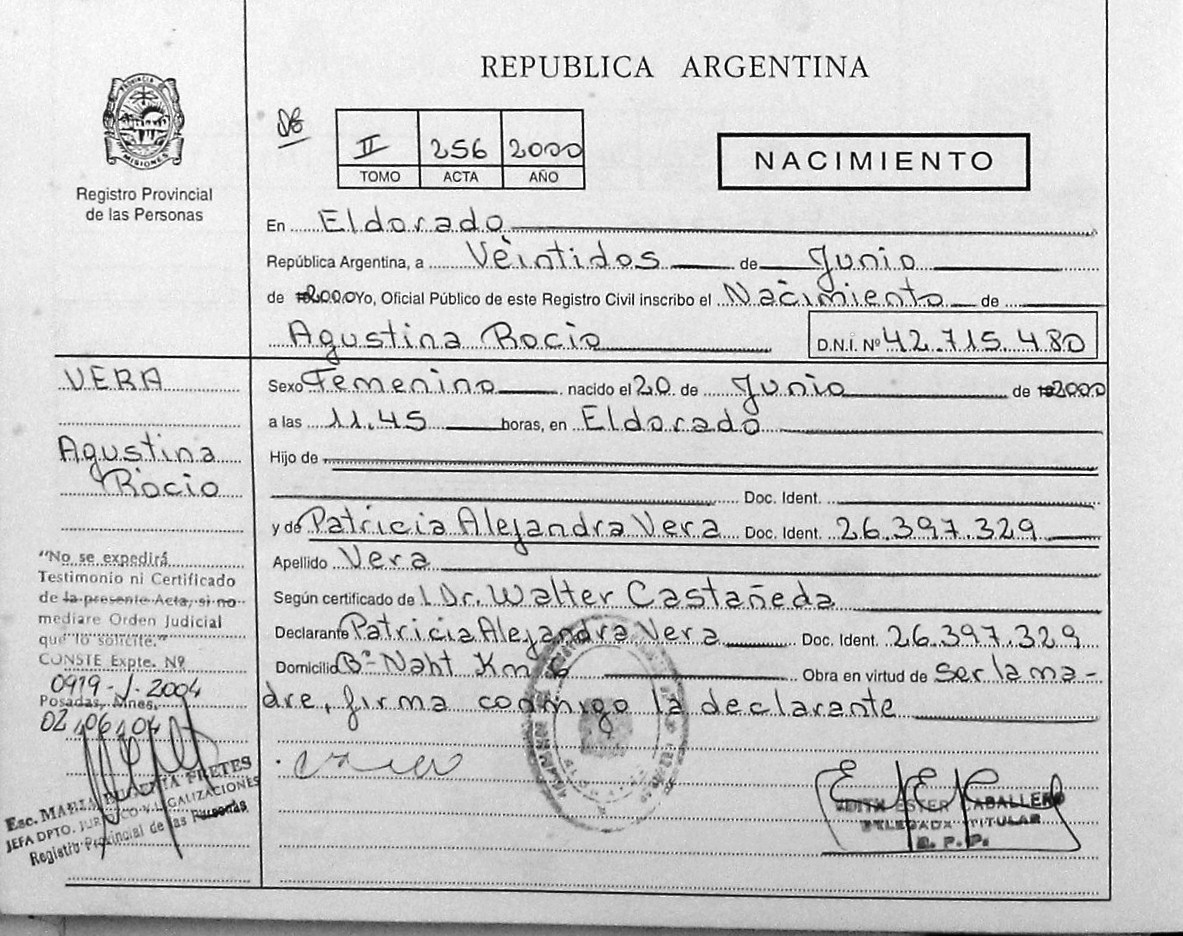 REPUBLICA ARGENTINA
PROVINCIA DE
MISIONES
Registro Provincial
de las Personas
II 256 2000
TOMO ACTA AÑO
NACIMIENTO
En Eldorado
República Argentina, a Veintidos de Junio
de 2000 Yo, Oficial Público de este Registro Civil inscribo el Nacimiento de
Agustina Rocio D.N.I. Nº 42.715.480
VERA
Agustina
Rocio
Sexo Femenino nacido el 20 de Junio de 2000
a las 11.45 horas, en Eldorado
Hijo de
Doc. Ident.
y de Patricia Alejandra Vera Doc. Ident. 26.397.329
Apellido Vera
Según certificado de l Dr. Walter Castañeda
Declarante Patricia Alejandra Vera Doc. Ident. 26.397.329
Domicilio Bº Naht Km 6 Obra en virtud de Ser la ma-
dre, firma conmigo la declarante
"No se expedirá
Testimonio ni Certificado
de la presente Acta, si no
mediare Orden Judicial
que lo solicite."
CONSTE Expte. Nº
0919-J-2004
Posadas, Mnes,
02/06/04
Esc. MARIA EUGENIA FRETES
JEFA DPTO. JURIDICO Y LEGALIZACIONES
Registro Provincial de las Personas
EDITH ESTER CABALLERO
DELEGADA TITULAR
R. P. P.